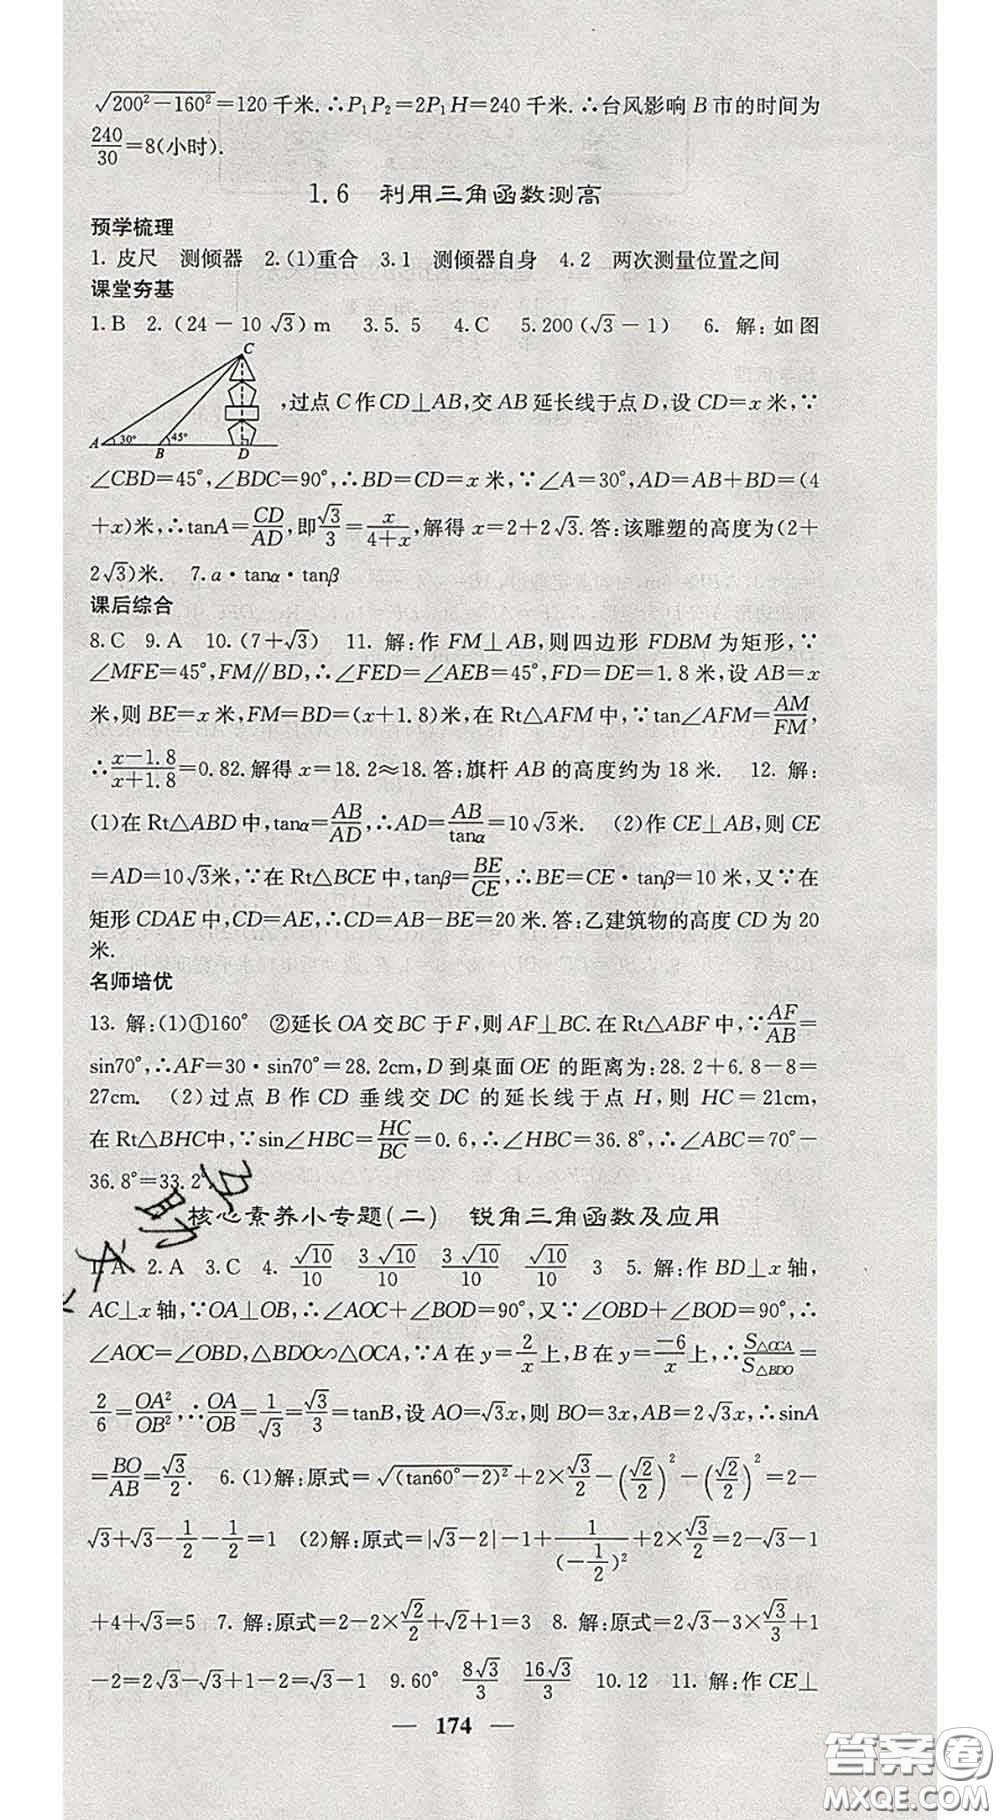 √(200²−160²)=120 千米.∴P₁P₂=2P₁H=240 千米.∴台风影响 B 市的时间为
240/30=8(小时).
1.6 利用三角函数测高
预学梳理
1. 皮尺 测倾器 2.(1)重合 3.1 测倾器自身 4.2 两次测量位置之间
课堂夯基
1.B 2.(24－10√3)m 3.5.5 4.C 5.200(√3－1) 6. 解:如图
C
A 30° B 45° D
,过点 C 作 CD⊥AB,交 AB 延长线于点 D,设 CD=x 米,∵
∠CBD=45°,∠BDC=90°,∴BD=CD=x 米,∵∠A=30°,AD=AB+BD=(4
+x)米,∴tanA=CD/AD,即√3/3=x/(4+x),解得 x=2+2√3.答:该雕塑的高度为(2+
2√3)米. 7.a·tanα·tanβ
课后综合
8.C 9.A 10.(7+√3) 11. 解:作 FM⊥AB,则四边形 FDBM 为矩形,∵
∠MFE=45°,FM∥BD,∴∠FED=∠AEB=45°,FD=DE=1.8 米,设 AB=x
米,则 BE=x 米,FM=BD=(x+1.8)米,在 Rt△AFM 中,∵tan∠AFM=AM/FM,
∴(x−1.8)/(x+1.8)=0.82.解得 x=18.2≈18.答:旗杆 AB 的高度约为 18 米. 12. 解:
(1)在 Rt△ABD 中,tanα=AB/AD,∴AD=AB/tanα=10√3米. (2)作 CE⊥AB,则 CE
=AD=10√3米,∵在 Rt△BCE 中,tanβ=BE/CE,∴BE=CE·tanβ=10 米,又∵在
矩形 CDAE 中,CD=AE,∴CD=AB−BE=20 米.答:乙建筑物的高度 CD 为 20
米.
名师培优
13. 解:(1)①160° ②延长 OA 交 BC 于 F,则 AF⊥BC.在 Rt△ABF 中,∵AF/AB=
sin70°,∴AF=30·sin70°=28.2cm,D 到桌面 OE 的距离为:28.2+6.8−8=
27cm. (2)过点 B 作 CD 垂线交 DC 的延长线于点 H,则 HC=21cm,
在 Rt△BHC中,∵sin∠HBC=HC/BC=0.6,∴∠HBC=36.8°,∴∠ABC=70°−
36.8°=33.2°.
核心素养小专题(二) 锐角三角函数及应用
1.A 2.A 3.C 4. √10/10 3√10/10 3√10/10 √10/10 3 5. 解:作 BD⊥x 轴,
AC⊥x 轴,∵OA⊥OB,∴∠AOC+∠BOD=90°,又∵∠OBD+∠BOD=90°,∴
∠AOC=∠OBD,△BDO∽△OCA,∵A 在 y=2/x上,B 在 y=−6/x上,∴S△OCA/S△BDO=
2/6=OA²/OB²,∴OA/OB=1/√3=√3/3=tanB,设 AO=√3x,则 BO=3x,AB=2√3x,∴sinA
=BO/AB=√3/2. 6.(1)解:原式=√(tan60°−2)²+2×√3/2−(√2/2)²−(√2/2)²=2−
√3+√3−1/2−1/2=1 (2)解:原式=|√3−2|−1+1/(−1/2)²+2×√3/2=2−√3−1
+4+√3=5 7. 解:原式=2−2×√2/2+√2+1=3 8. 解:原式=2√3−3×√3/3+1
−2=2√3−√3+1−2=√3−1 9.60° 8√3/3 16√3/3 10.12 11. 解:作 CE⊥
— 174 —
答案圈
MXQE.COM